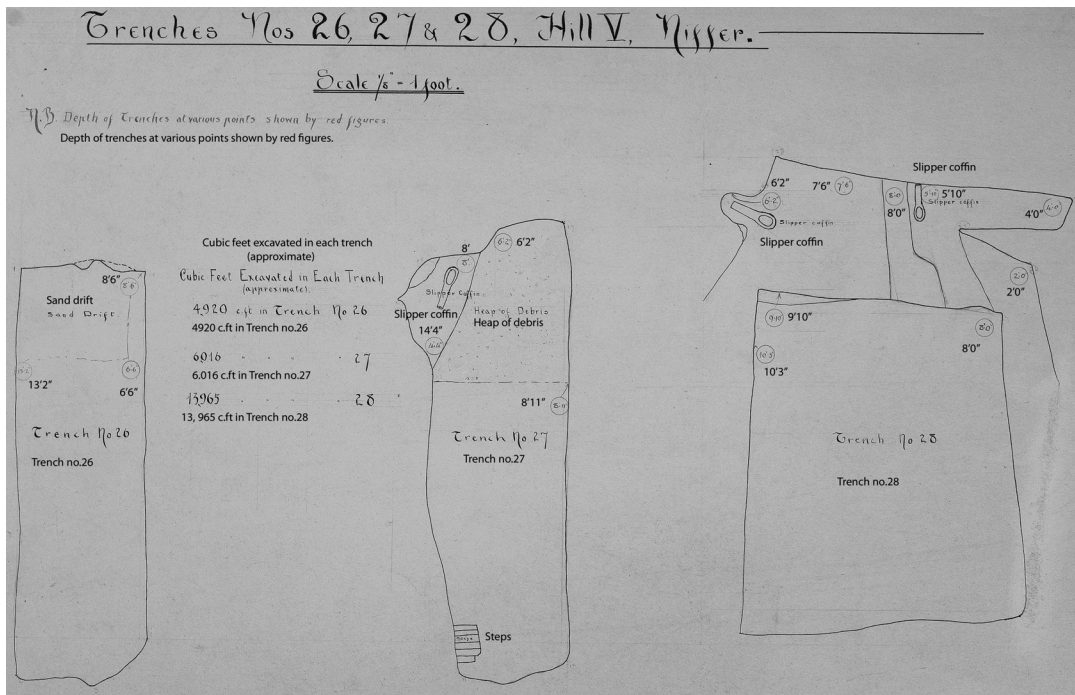 Trenches Nos 26, 27 & 28, Hill V, Niffer.
Scale 1/8" - 1 foot.
N.B. Depth of Trenches at various points shown by red figures.
Depth of trenches at various points shown by red figures.
8'6"
8'6"
Sand drift
Sand Drift.
13'2"
6'6"
6'6"
Trench No 26
Trench no.26
Cubic feet excavated in each trench
(approximate)
Cubic Feet Excavated in Each Trench
(approximate).
4920 c.ft in Trench No 26
4920 c.ft in Trench no.26
6016 " " " " 27
6.016 c.ft in Trench no.27
13,965 " " " " 28
13, 965 c.ft in Trench no.28
8'
8'
6'2"
6'2"
Slipper Coffin.
Slipper coffin
Heap of Debris
Heap of debris
14'4"
8'11"
8'11"
Trench No 27
Trench no.27
Steps
Steps
6'2"
6'2"
7'6"
7'6"
Slipper coffin
Slipper coffin
8'0"
8'0"
Slipper coffin
5'10"
5'10"
Slipper coffin
4'0"
4'0"
2'0"
2'0"
9'10"
9'10"
8'0"
8'0"
10'3"
10'3"
Trench No 28
Trench no.28